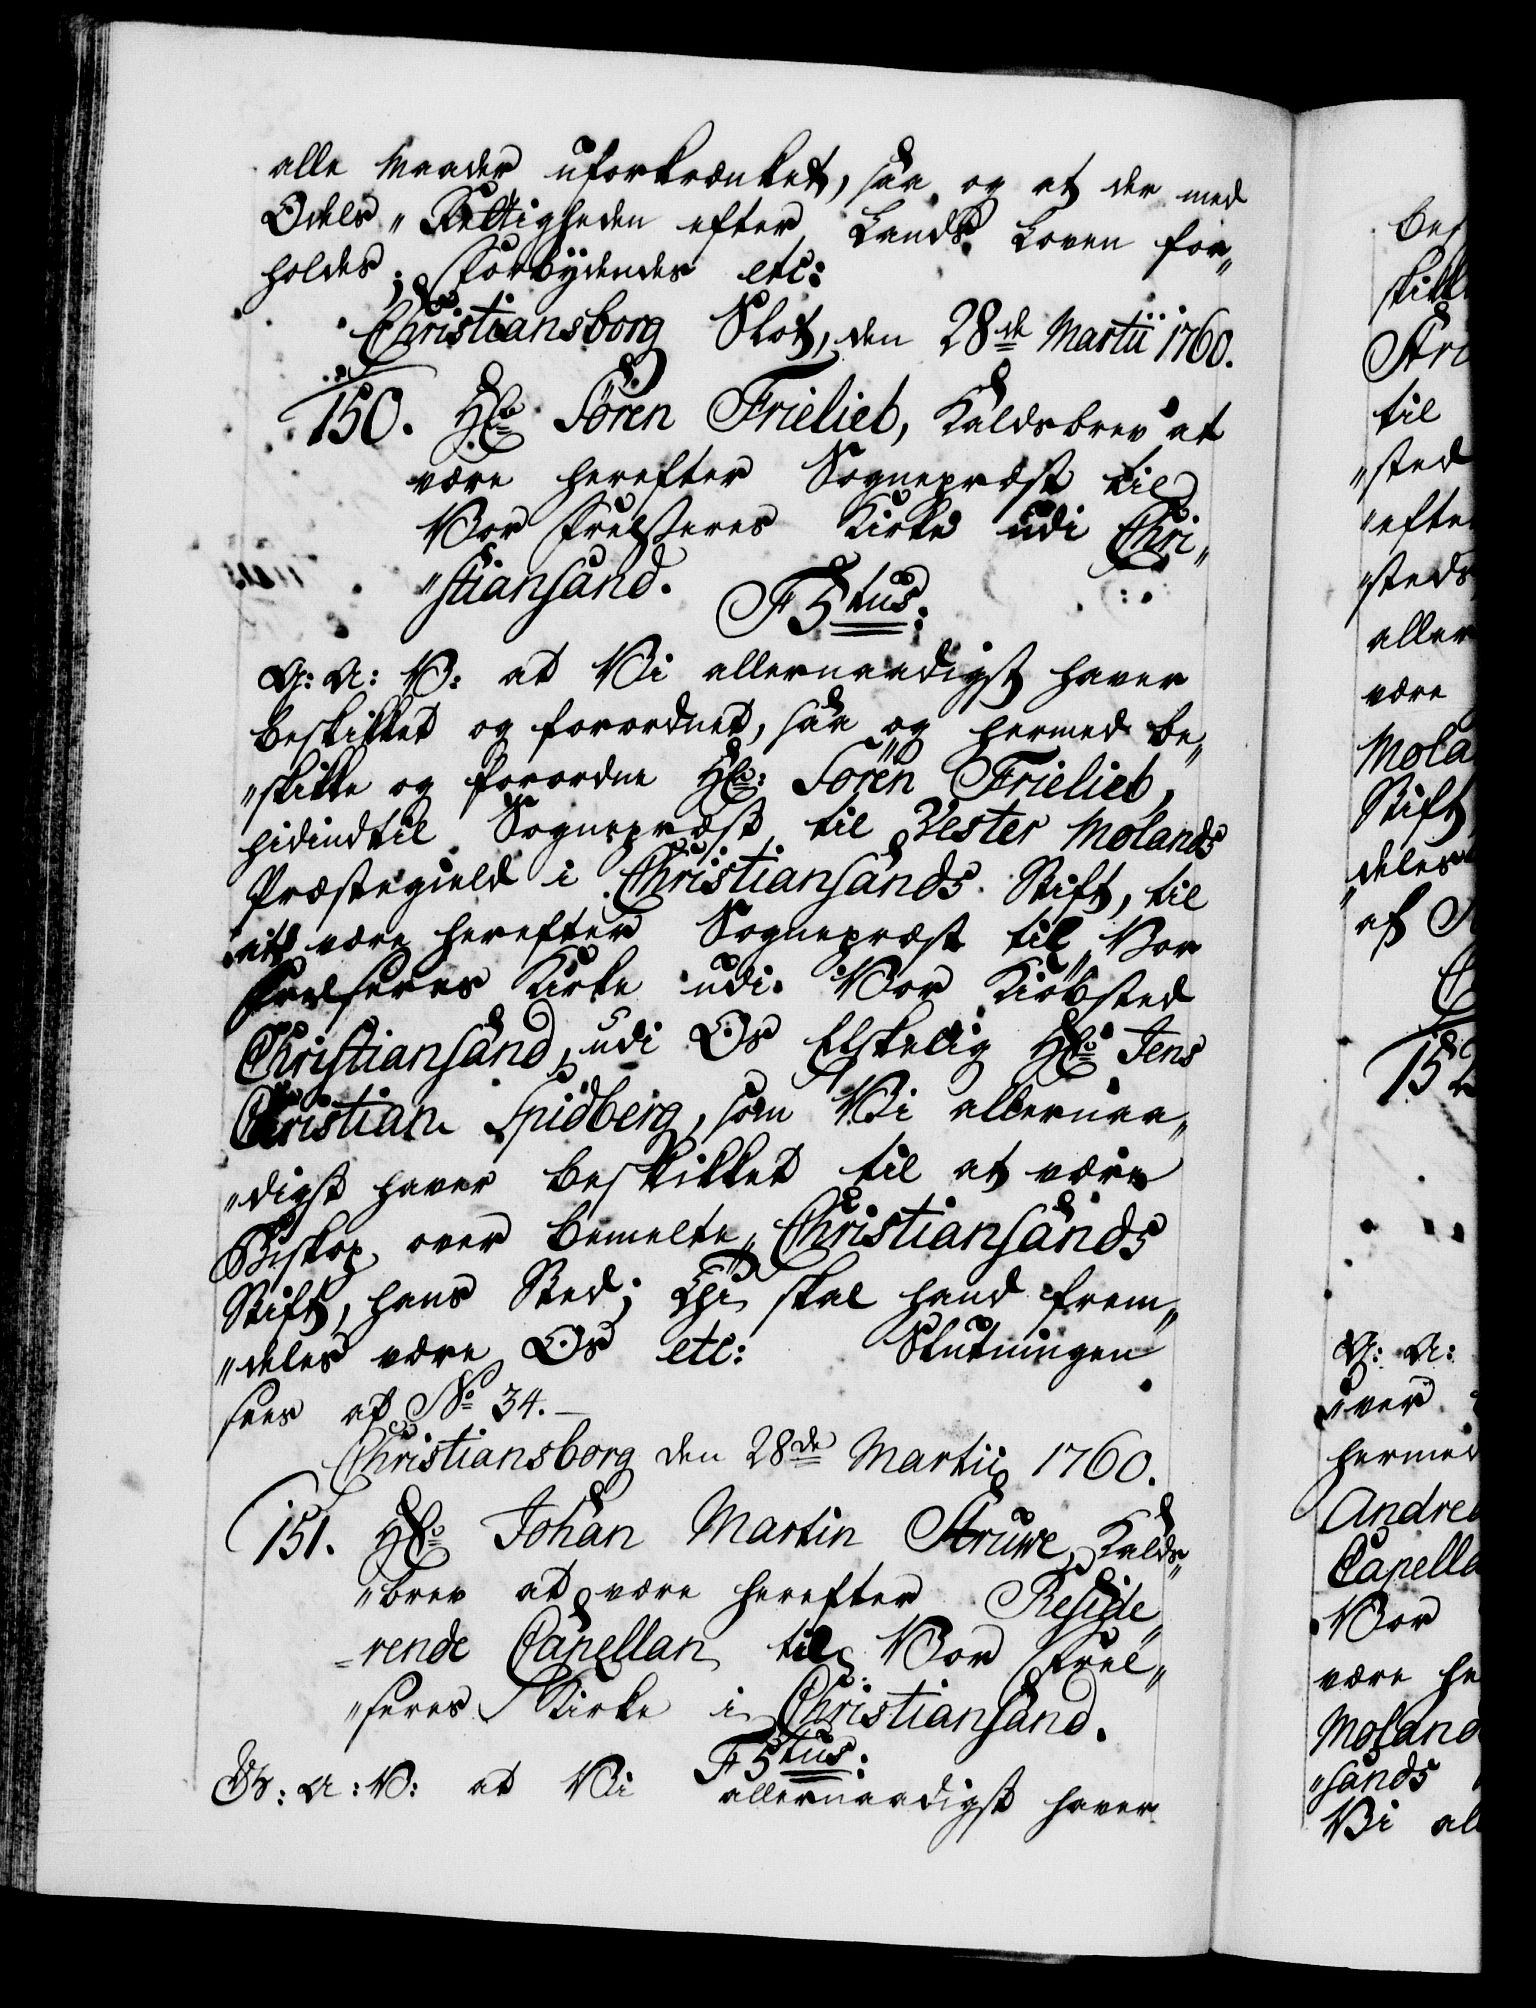 alle Maader uforkrænket, saa og at der med
Odels „ Rettigheden efter Lands Loven for„
holdes; Forbÿdendes etc:
Christiansborg Slot, den 28de Martii 1760.
150. Hr: Sören Frielieb, Kaldsbrev at
være herefter Sognepræst til
Vor Frelseres Kirke udi Chri„
„stiansand.
F5tus:
G: A: V: at Vi allernaadigst haver
beskikket og forordnet, saa og hermed be„
„skikke og forordne Hr: Sören Frielieb,
hidindtil Sognepræst til Vester Molands
Præstegield i Christiansands Stift, til
at være herefter Sognepræst til Vor
Frelseres Kirke udi Vor Kiöbsted
Christiansand, udi Os Elskelig Hr: Jens
Christian Spidberg, som Vi allernaa„
„digst haver beskikket til at være
Biskop over bemelte Christiansands
Stift, hans Sted; Thi skal hand frem„
„deles være Os etc: Slutningen
sees af No 34.
Christiansborg den 28de Martii 1760.
151. Hr: Johan Martin Struwe, Kalds„
„brev at være herefter Reside„
„rende Capellan til Vor Frel„
„seres Kirke i Christiansand.
F5tus:
G: A: V: at Vi allernaadigst haver
skikk
til
„sted
„efter
„steds
aller
være
Mola
Stift
deles
af
152
G: A:
over
hermed
Andrea
Capella
Vor
være he
Moland
„sands
Vi al